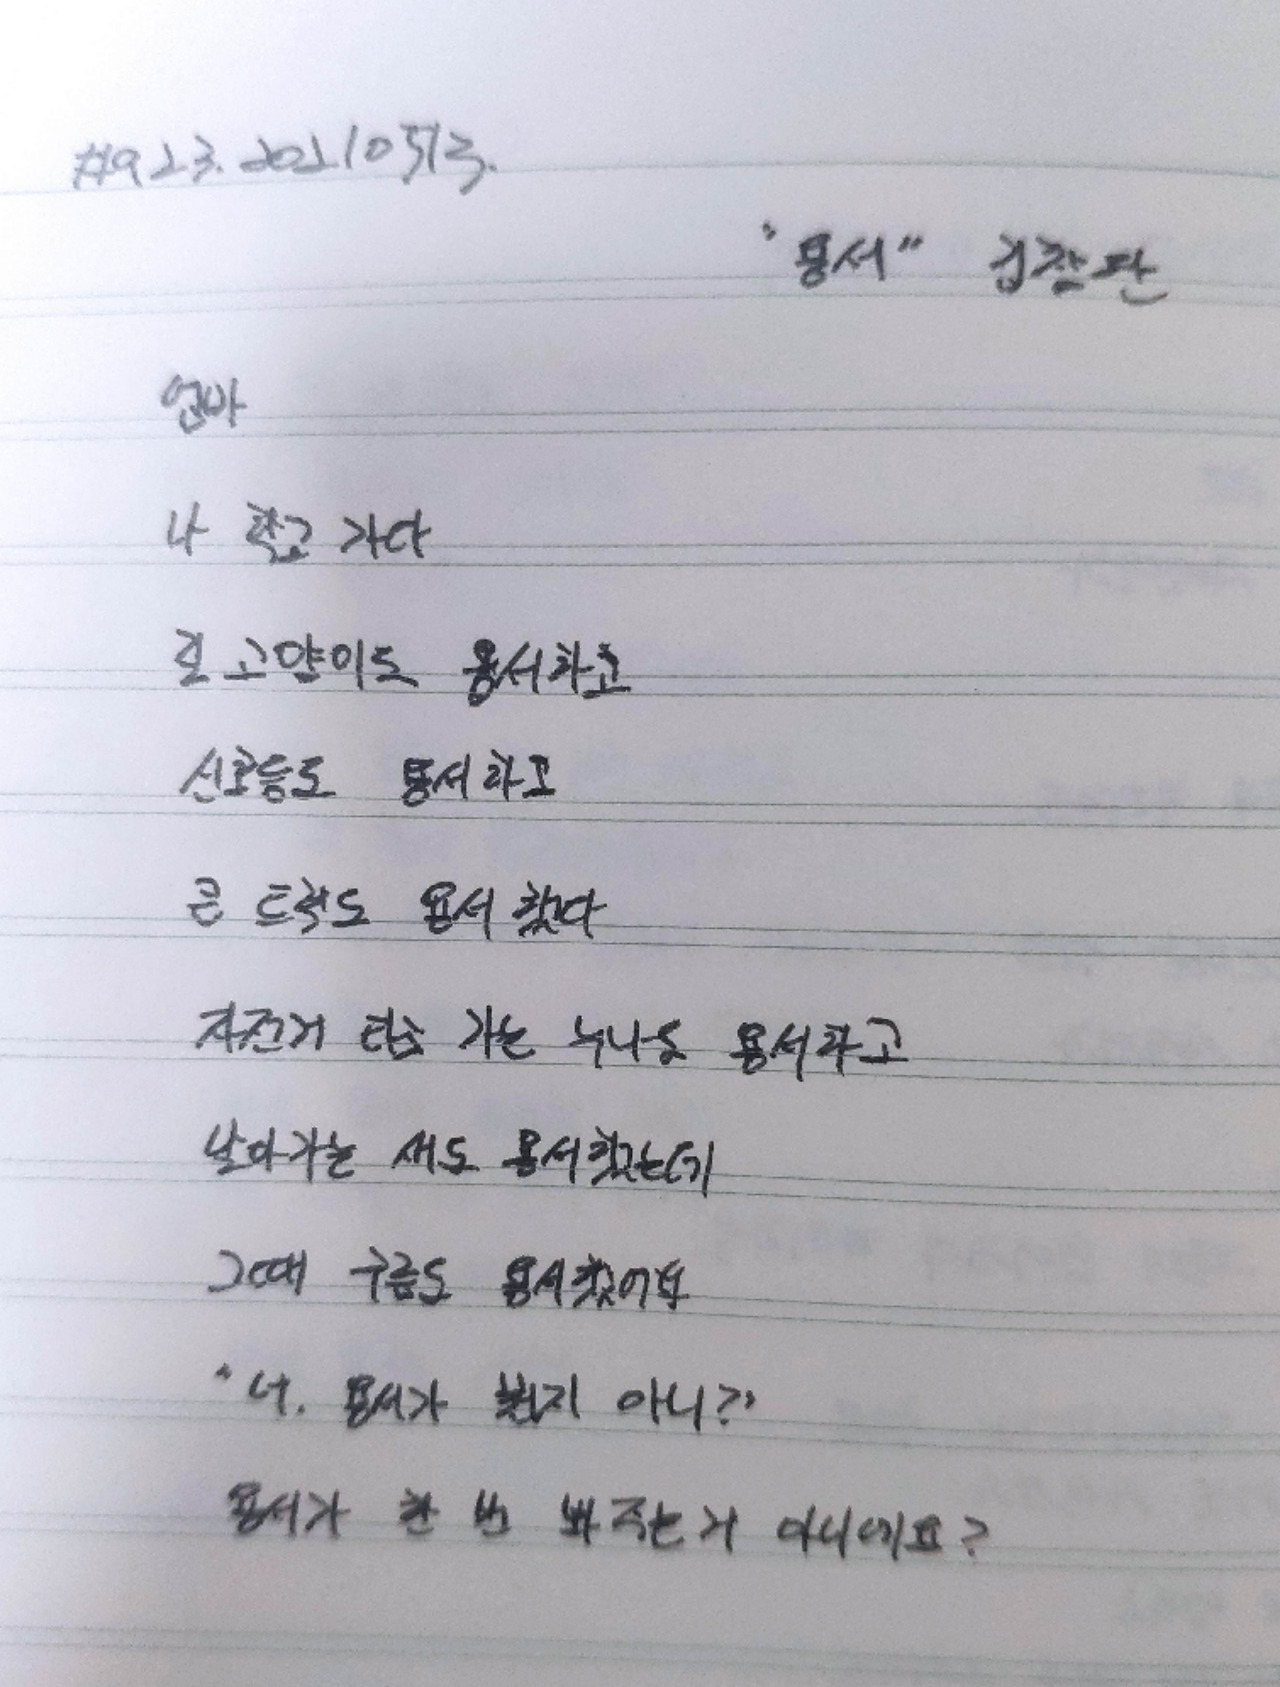 #923. 2021 0513.
"용서" 김창완
엄마
나 학교 가다
길 고양이도 용서하고
신호등도 용서하고
큰 트럭도 용서했다
자전거 타고 가는 누나도 용서하고
날아가는 새도 용서했는데
그때 구름도 용서했어야
"너. 용서가 뭔지 아니?"
용서가 한 번 봐 주는거 아니에요?